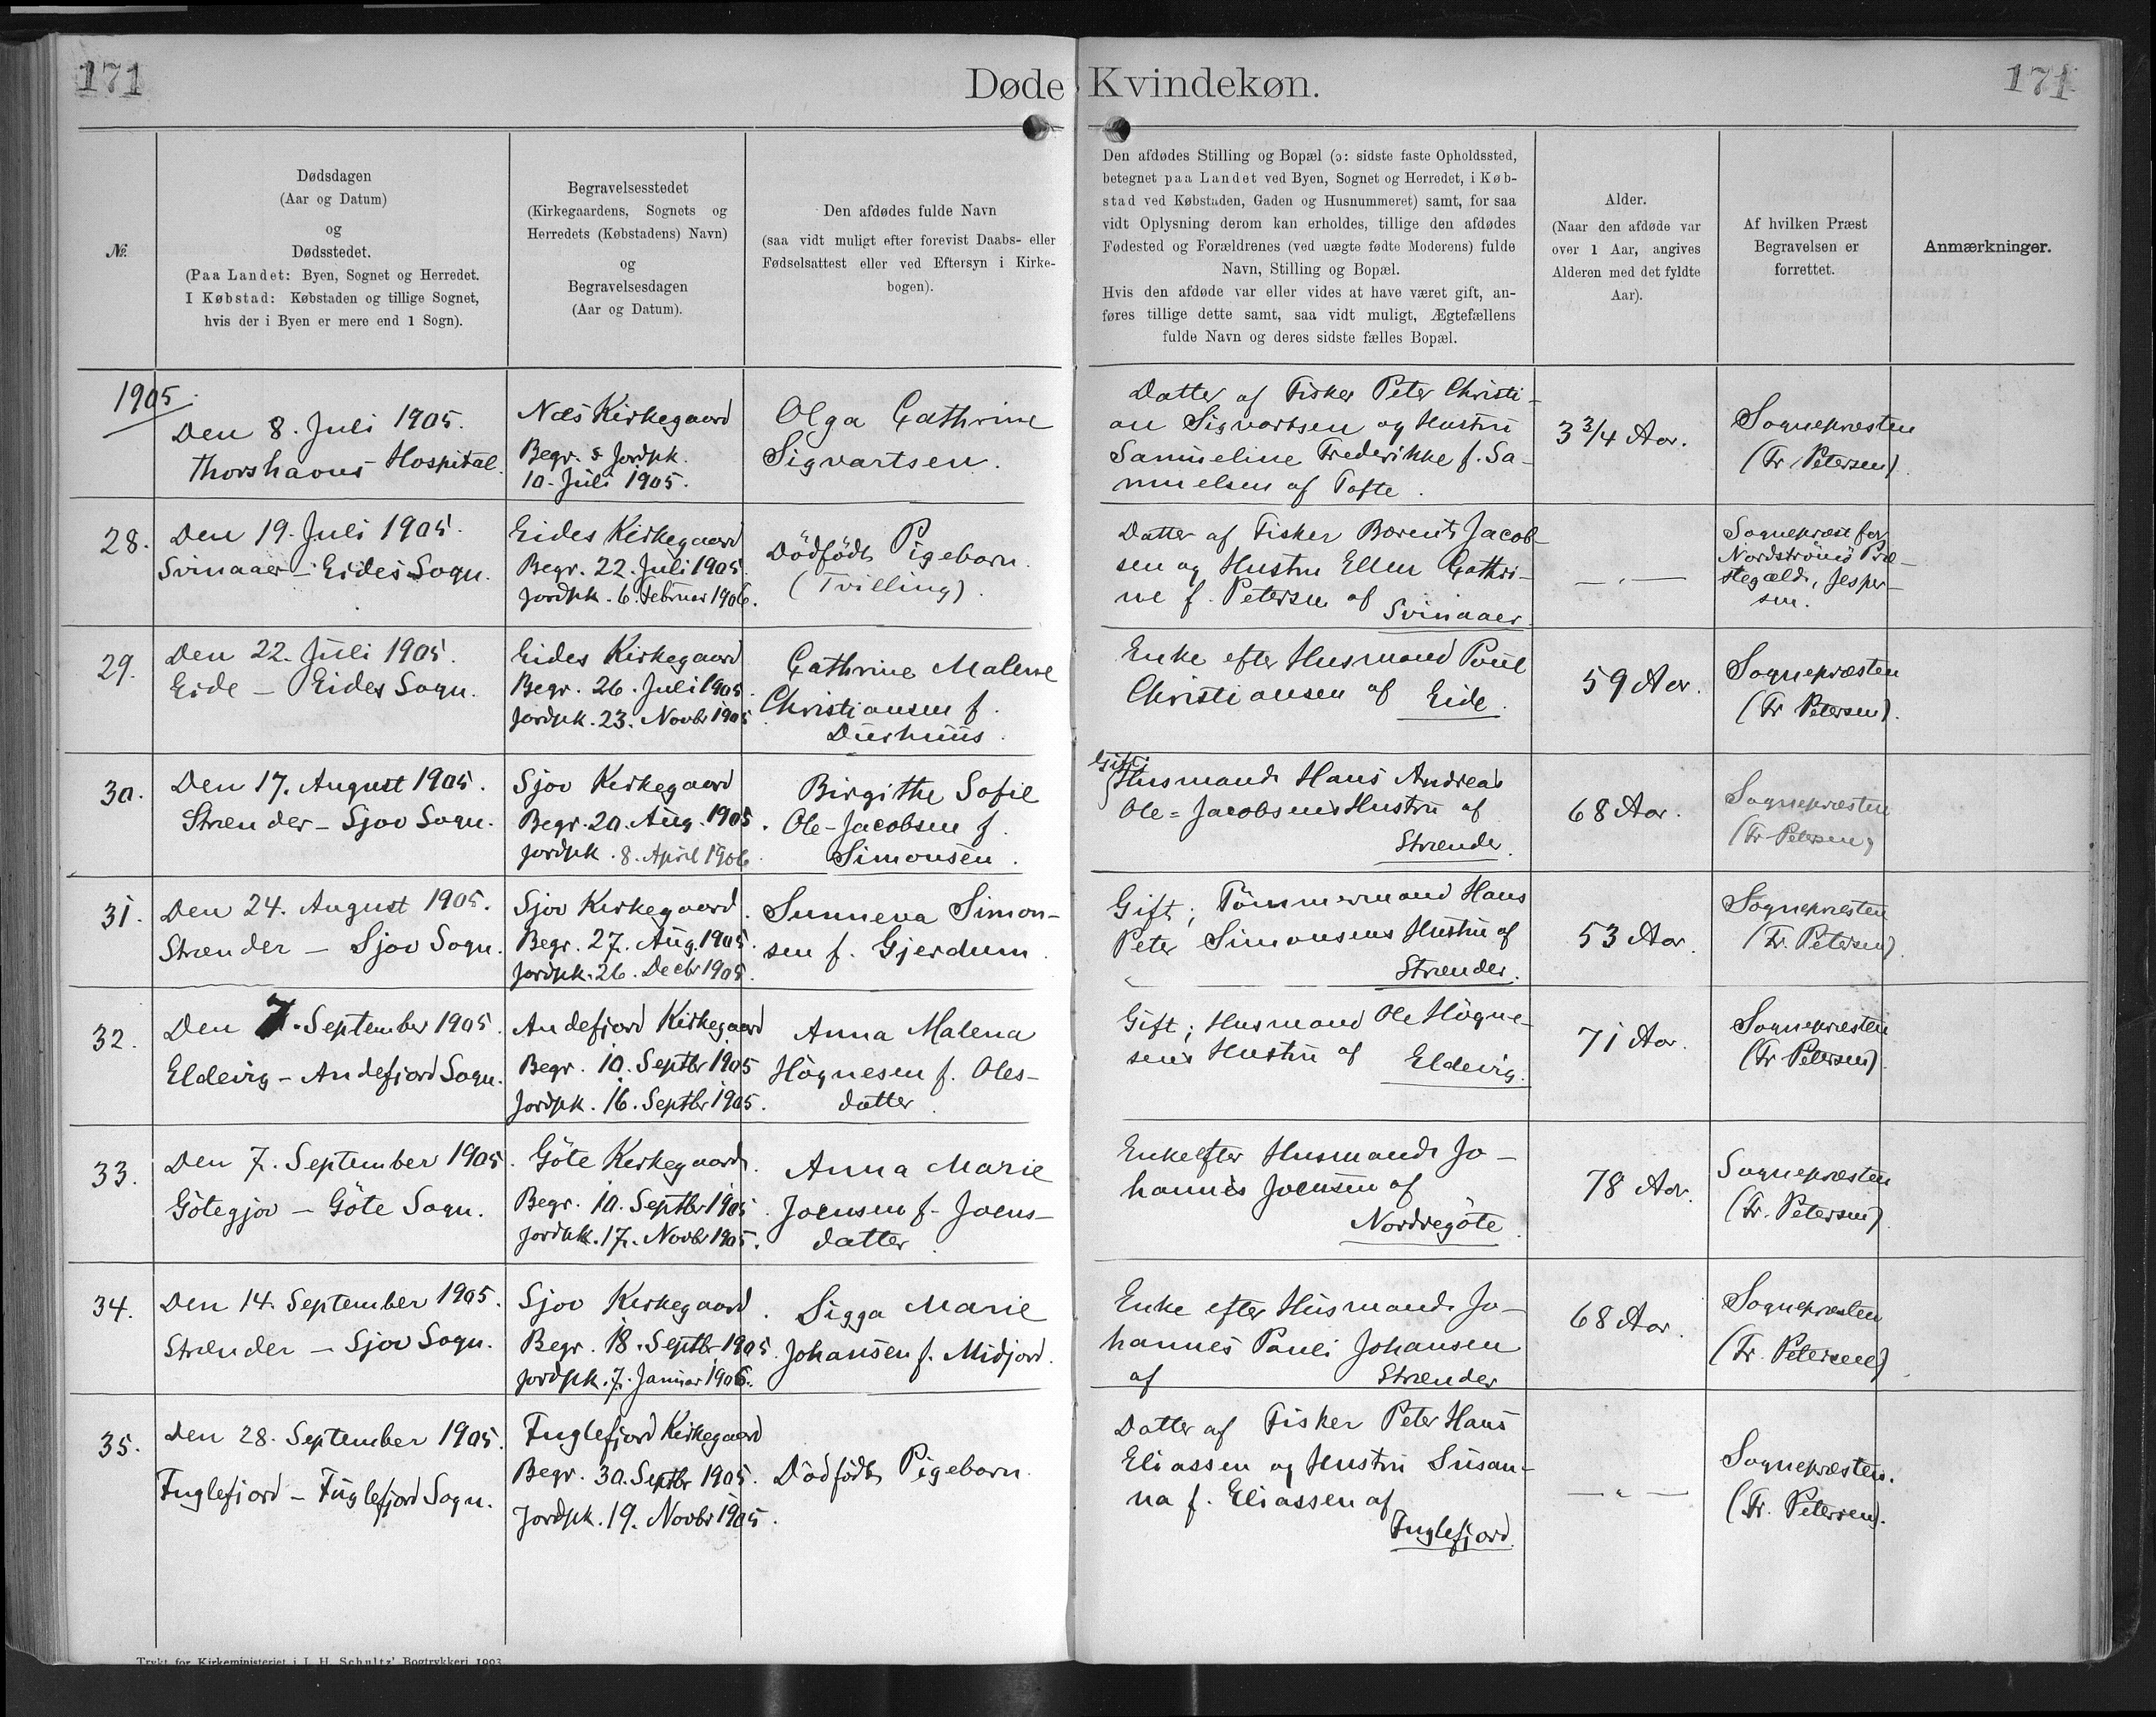 171
Døde Kvindekøn.
171
№.
Dødsdagen
(Aar og Datum)
og
Dødsstedet.
(Paa Landet: Byen, Sognet og Herredet.
I Købstad: Købstaden og tillige Sognet,
hvis der i Byen er mere end 1 Sogn).
Begravelsesstedet
(Kirkegaardens, Sognets og
Herredets (Købstadens) Navn)
og
Begravelsesdagen
(Aar og Datum).
Den afdødes fulde Navn
(saa vidt muligt efter forevist Daabs- eller
Fødselsattest eller ved Eftersyn i Kirke-
bogen).
Den afdødes Stilling og Bopæl (ɔ: sidste faste Opholdssted,
betegnet paa Landet ved Byen, Sognet og Herredet, i Køb-
stad ved Købstaden, Gaden og Husnummeret) samt, for saa
vidt Oplysning derom kan erholdes, tillige den afdødes
Fødested og Forældrenes (ved uægte fødte Moderens) fulde
Navn, Stilling og Bopæl.
Hvis den afdøde var eller vides at have været gift, an-
føres tillige dette samt, saa vidt muligt, Ægtefællens
fulde Navn og deres sidste fælles Bopæl.
Alder.
(Naar den afdøde var
over 1 Aar, angives
Alderen med det fyldte
Aar).
Af hvilken Præst
Begravelsen er
forrettet.
Anmærkninger.
1905.
Den 8. Juli 1905.
Thorshavns Hospital.
Næs Kirkegaard
Begr. & Jordpk.
10. Juli 1905.
Olga Cathrine
Sigvartsen.
Datter af Fisker Peter Christi-
an Sigvartsen og Hustru
Samueline Frederikke f. Sa-
muelsen af Tofte.
3 3/4 Aar.
Sognepræsten
(Fr. Petersen).
28.
Den 19. Juli 1905.
Svinaaer - Eides Sogn.
Eides Kirkegaard
Begr. 22. Juli 1905.
Jordpk. 6. Februar 1906.
Dödfödt Pigebarn.
(Tvilling).
Datter af Fisker Barent Jacob-
sen og Hustru Ellen Cathri-
ne f. Petersen af Svinaaer.
— " —
Sognepræst for
Nordströmö Præ-
stegæld, Jesper-
sen.
29.
Den 22. Juli 1905.
Eide - Eides Sogn.
Eides Kirkegaard
Begr. 26. Juli 1905.
Jordpk. 23. Novbr 1905
Cathrine Malene
Christiansen f.
Duurhuus.
Enke efter Husmand Poul
Christiansen af Eide.
59 Aar.
Sognepræsten
(Fr Petersen).
30.
Den 17. August 1905.
Strænder - Sjov Sogn.
Sjov Kirkegaard
Begr. 20. Aug. 1905.
Jordpk. 8. April 1906.
Birgithe Sofie
Ole-Jacobsen f.
Simonsen.
Gift;
Husmand Hans Andreas
Ole-Jacobsens Hustru af
Strænder.
68 Aar.
Sognepræsten
(Fr Petersen)
31.
Den 24. August 1905.
Strænder - Sjov Sogn.
Sjov Kirkegaard.
Begr. 27. Aug. 1905.
Jordpk. 26. Decbr 1905.
Sunneva Simon-
sen f. Gjerdum.
Gift; Tömmermand Hans
Peter Simonsens Hustru af
Strænder.
53 Aar.
Sognepræsten
(Fr. Petersen).
32.
Den 7. September 1905.
Eldevig - Andefjord Sogn.
Andefjord Kirkegaard
Begr. 10. Septbr 1905
Jordpk. 16. Septbr 1905.
Anna Malena
Högnesen f. Oles-
datter.
Gift; Husmand Ole Högne-
sens Hustru af Eldevig.
71 Aar.
Sognepræsten
(Fr Petersen).
33.
Den 7. September 1905.
Götegjov - Göte Sogn.
Göte Kirkegaard.
Begr. 10. Septbr 1905.
Jordpk. 17. Novbr 1905.
Anna Marie
Joensen f. Joens-
datter.
Enke efter Husmand Jo-
hannes Joensen af
Nordregöte.
78 Aar.
Sognepræsten
(Fr. Petersen).
34.
Den 14. September 1905.
Strænder - Sjov Sogn.
Sjov Kirkegaard.
Begr. 18. Septbr 1905.
Jordpk. 7. Januar 1906.
Sigga Marie
Johansen f. Midjord.
Enke efter Husmand Jo-
hannes Pauli Johansen
af Strænder
68 Aar.
Sognepræsten
(Fr. Petersen)
35.
Den 28. September 1905.
Fuglefjord - Fuglefjord Sogn.
Fuglefjord Kirkegaard
Begr. 30. Septbr 1905.
Jordpk. 19. Novbr 1905.
Dödfödt Pigebarn.
Datter af Fisker Peter Hans
Eliassen og Hustru Susan-
na f. Eliassen af
Fuglefjord.
— " —
Sognepræsten.
(Fr. Petersen).
Trykt for Kirkeministeriet i J. H. Schultz' Bogtrykkeri 1903